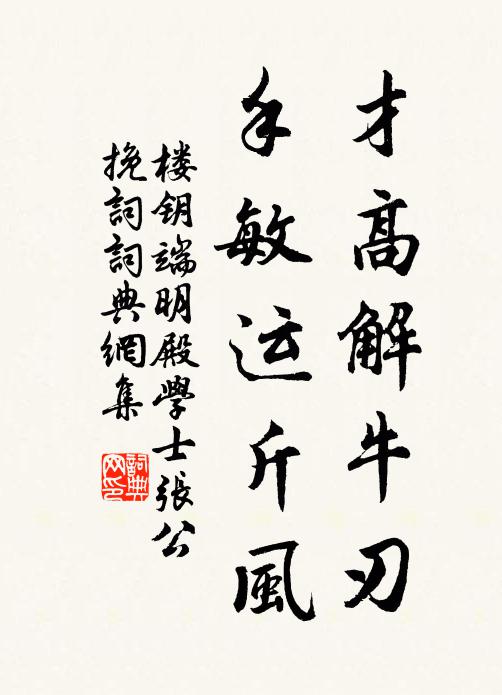 才高解牛刃
手敏运斤風
楼钥端明殿學士張公
挽詞詞典網集
詞典网印